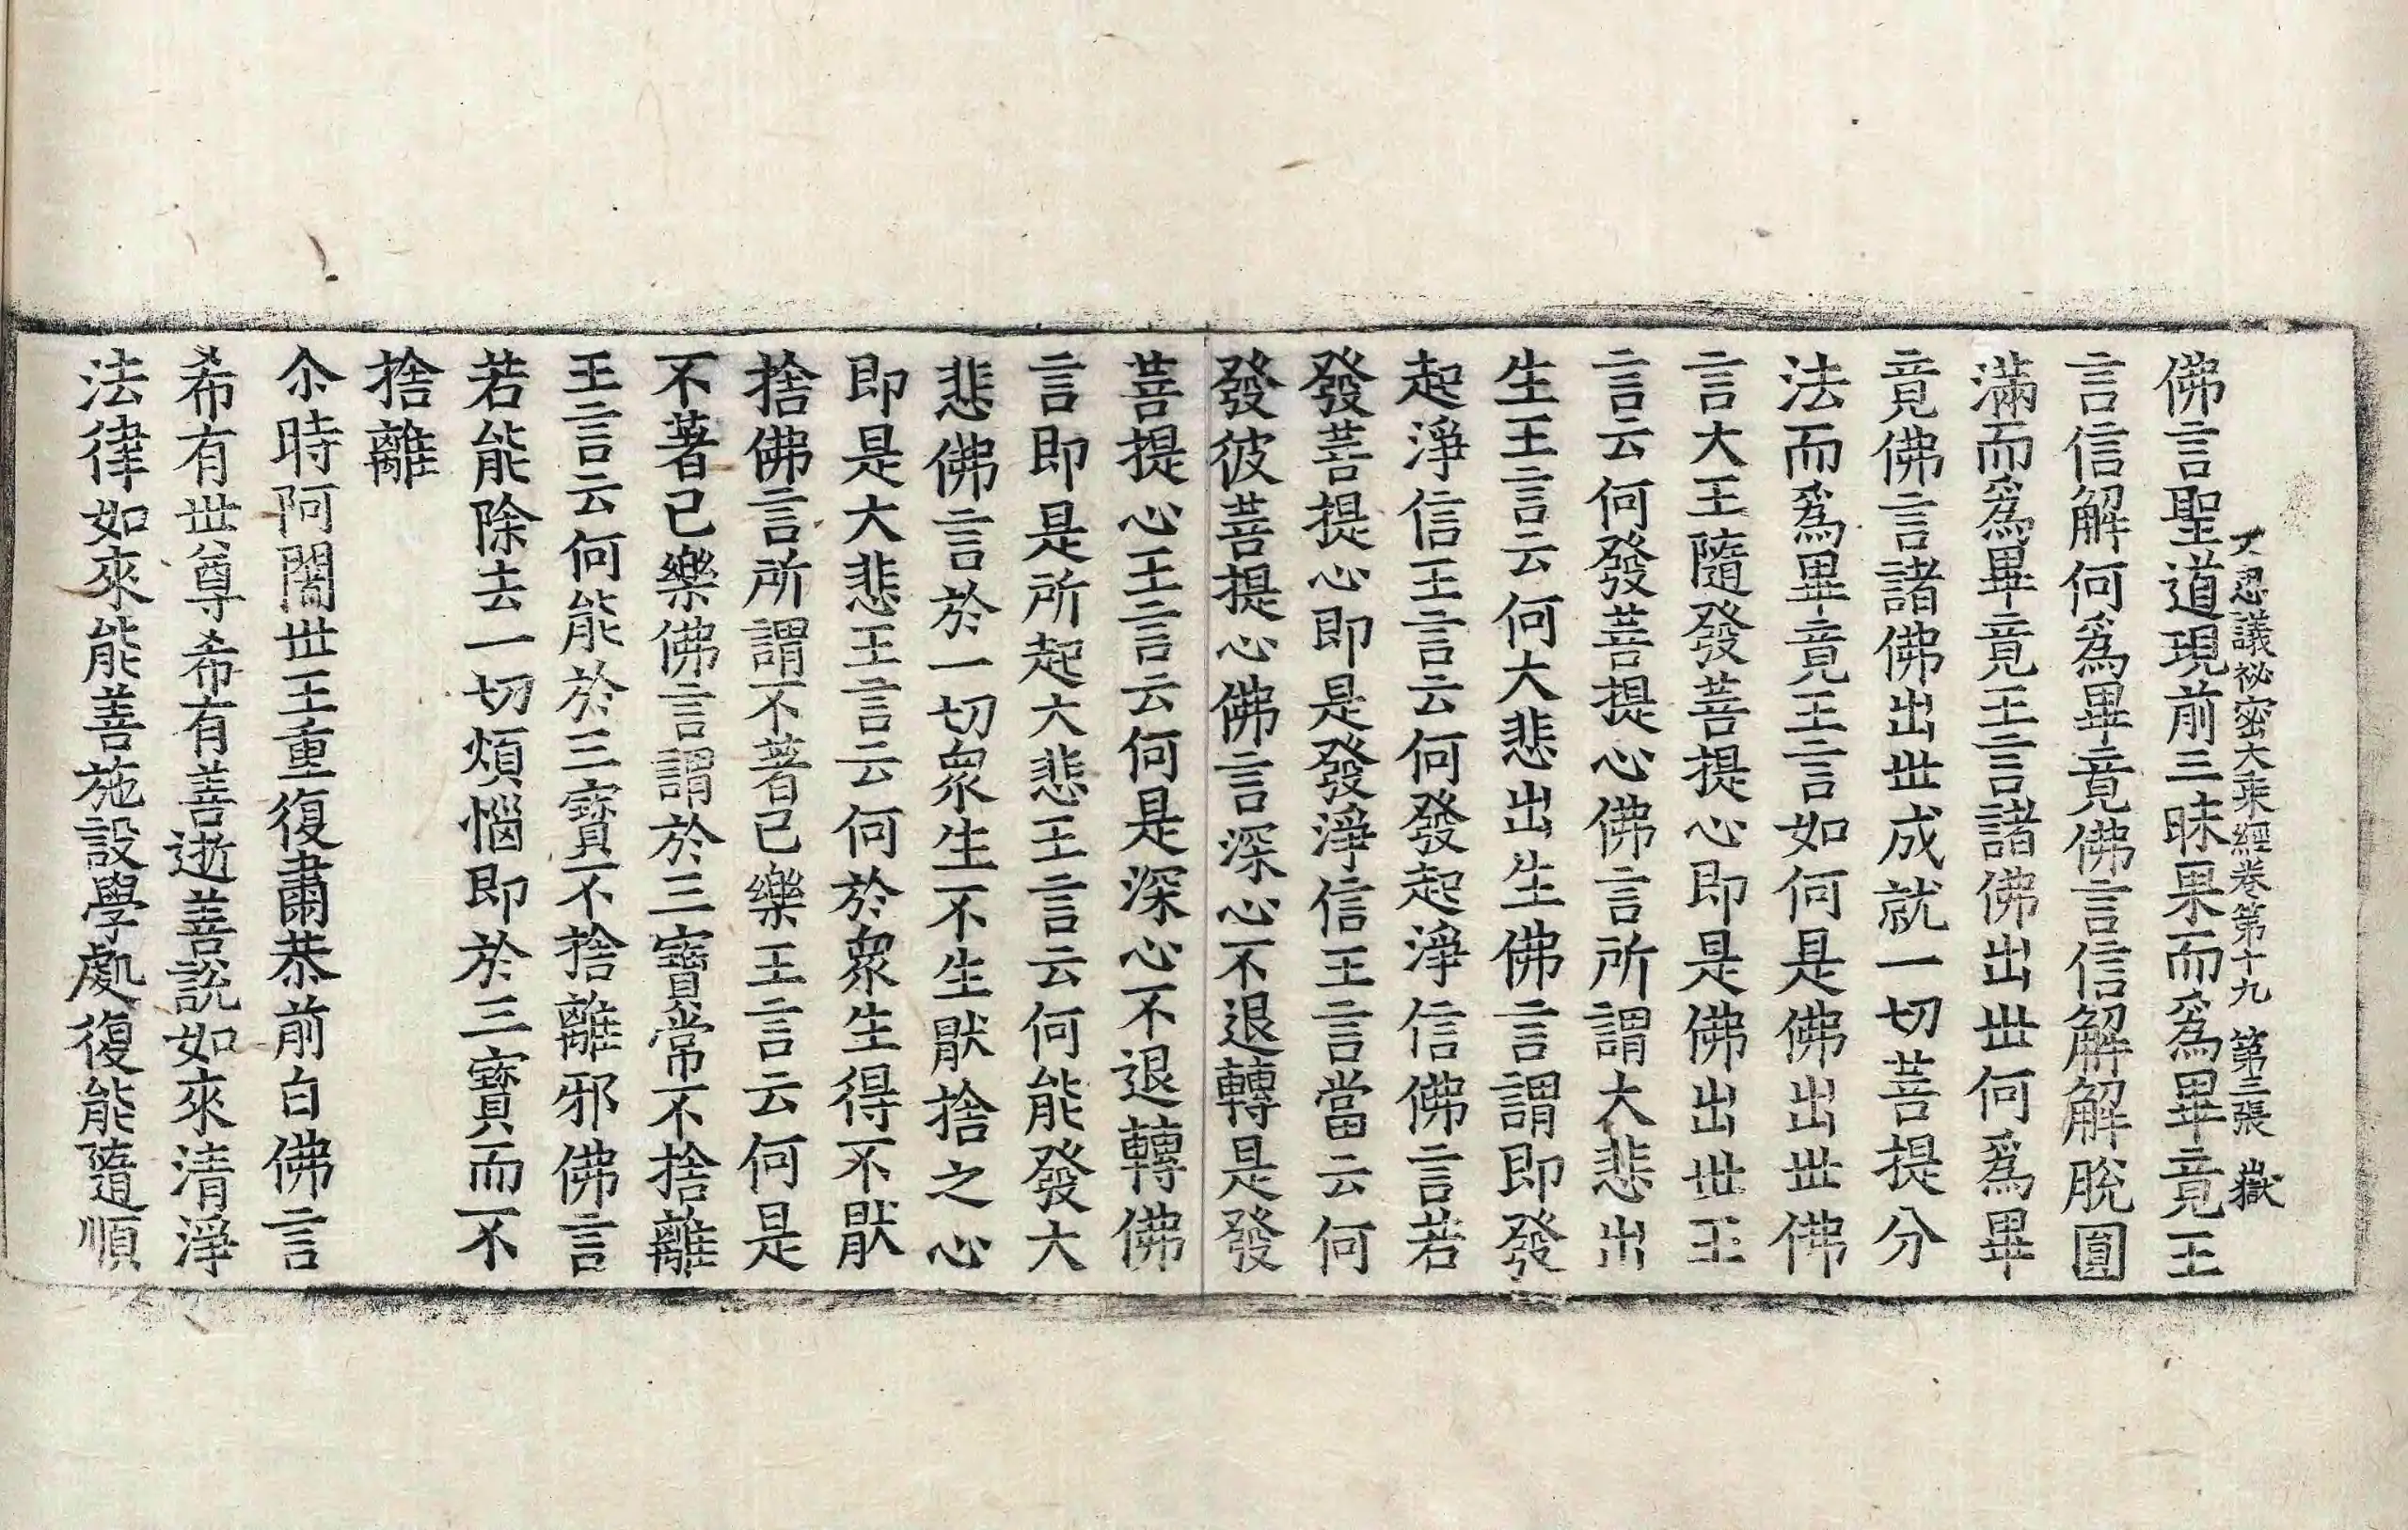 不思議祕密大乘經卷第十九 第三張 嶽
佛言聖道現前三昧果而爲畢竟王
言信解何爲畢竟佛言信解解脫圓
滿而爲畢竟王言諸佛出世何爲畢
竟佛言諸佛出世成就一切菩提分
法而爲畢竟王言如何是佛出世佛
言大王隨發菩提心即是佛出世王
言云何發菩提心佛言所謂大悲出
生王言云何大悲出生佛言謂即發
起淨信王言云何發起淨信佛言若
發菩提心即是發淨信王言當云何
發彼菩提心佛言深心不退轉是發
菩提心王言云何是深心不退轉佛
言即是所起大悲王言云何能發大
悲佛言於一切衆生不生猒捨之心
即是大悲王言云何於衆生得不猒
捨佛言所謂不著己樂王言云何是
不著己樂佛言謂於三寶常不捨離
王言云何能於三寶不捨離邪佛言
若能除去一切煩惱即於三寶而不
捨離
尒時阿闍世王重復肅恭前白佛言
希有世尊希有善逝善說如來清淨
法律如來能善施設學處復能隨順